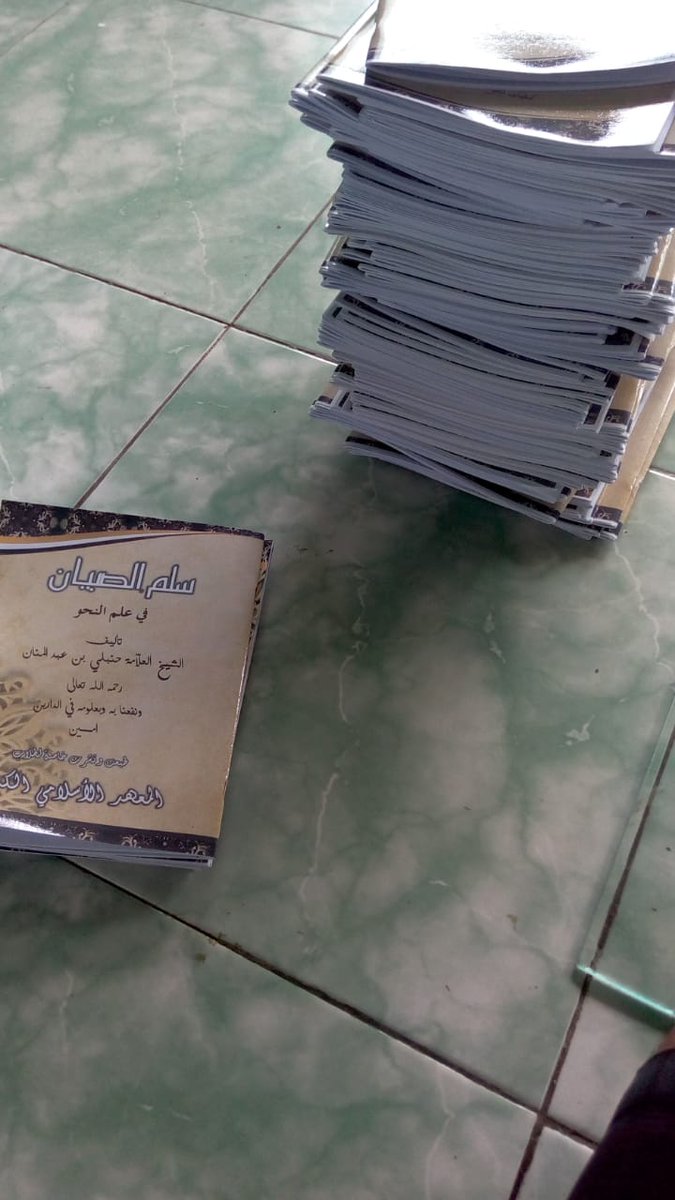 سلم الصيان
في علم النحو
تاليف
الشيخ العلامة حنبلي بن عبد المنان
رحمه الله تعالى
ونفعنا به وبعلومه في الدارين
امين
طبعت ونشرت خاصة لطلاب
المعهد الأسلامي